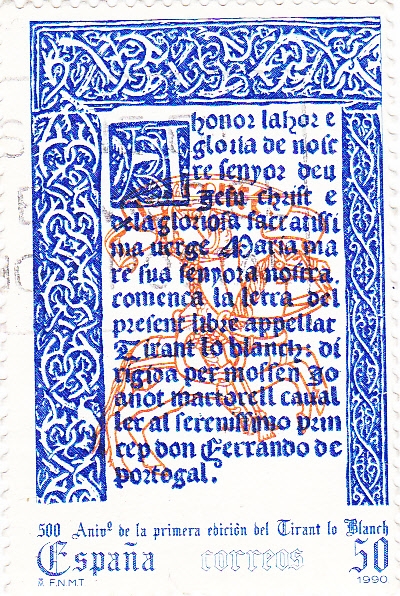 A honor lahor e
gloria de nost
re senyor deu
Jesu christ e
dela gloriosa sacratissi
ma uerge Maria ma
re sua senyora nostra.
comença la letra del
present libre appellat
Tirant lo blanch: di
rigida per mossen Jo
anot martorell caual
ler al serenissimo prin
cep don Ferrando de
portogal.
500 Anivº de la primera edición del Tirant lo Blanch
España correos 50
F.N.M.T 1990